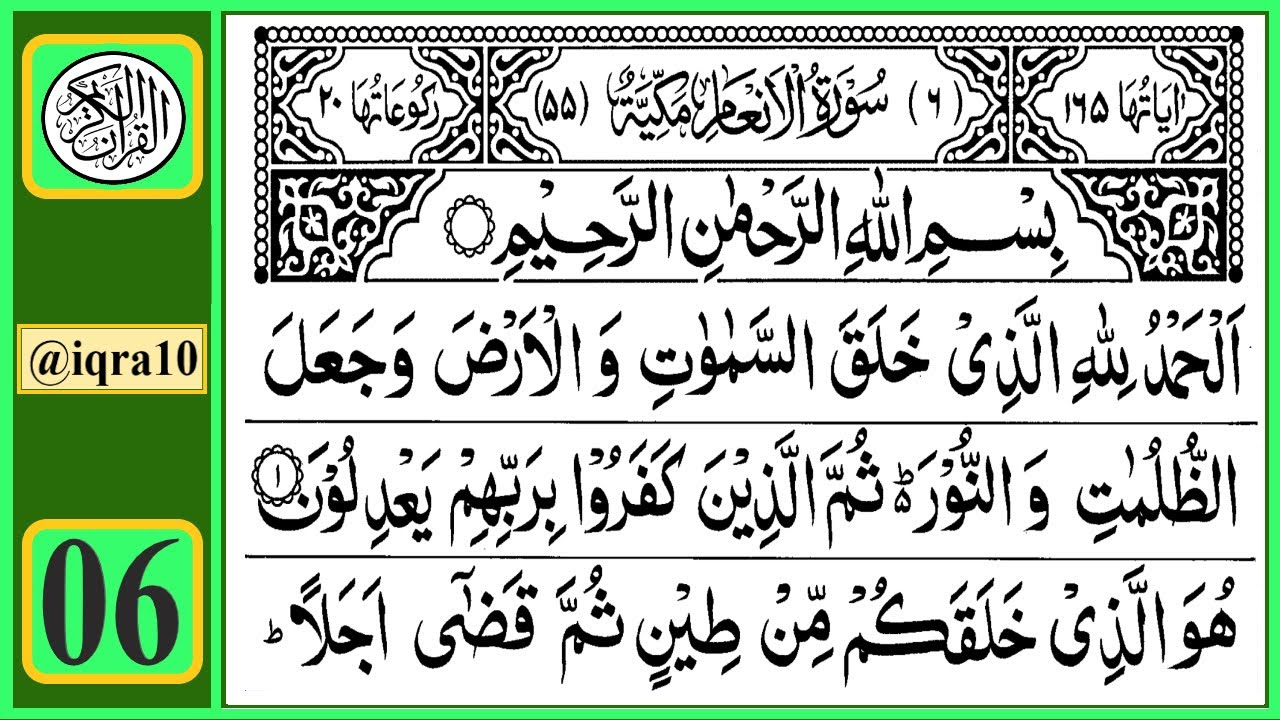 القرآن الكريم
@iqra10
06
اٰیَاتُهَا ۱۶۵
(۶) سُوْرَةُ الْاَنْعَامِ مَكِّيَّةٌ (۵۵)
رُكُوْعَاتُهَا ۲۰
بِسْمِ اللّٰهِ الرَّحْمٰنِ الرَّحِيْمِ
اَلْحَمْدُ لِلّٰهِ الَّذِیْ خَلَقَ السَّمٰوٰتِ وَ الْاَرْضَ وَ جَعَلَ
الظُّلُمٰتِ وَ النُّوْرَ ؕ۬ ثُمَّ الَّذِیْنَ كَفَرُوْا بِرَبِّهِمْ یَعْدِلُوْنَ ۱
هُوَ الَّذِیْ خَلَقَكُمْ مِّنْ طِیْنٍ ثُمَّ قَضٰۤی اَجَلًا ؕ